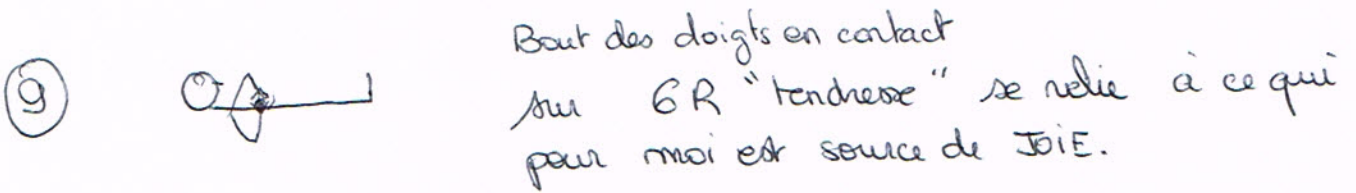 9
Bout des doigts en contact
sur 6R "tendresse" se relie à ce qui
pour moi est source de JOIE.